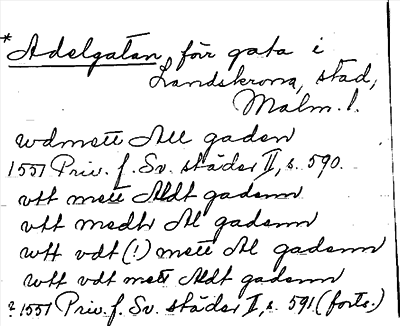 * Adelgatan, för gata i
Landskrona, stad,
Malm. l.
wdmett All gaden
1551 Priv. f. Sv. städer II, s. 590.
vtt mett Aldt gadenn
vtt medh Al gadenn
wtt vdt (!) mett Al gadenn
wtt vdt mett Aldt gadenn
? 1551 Priv. f. Sv. städer II, s. 591 (forts.)